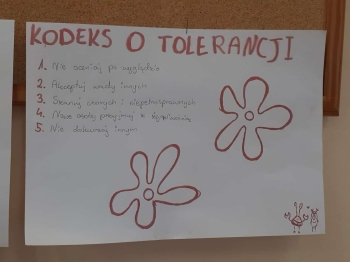 KODEKS O TOLERANCJI
1. Nie oceniaj po wyglądzie
2. Akceptuj wady innych
3. Szanuj chorych i niepełnosprawnych
4. Nowe osoby przyjmuj z
5. Nie dokuczaj innym